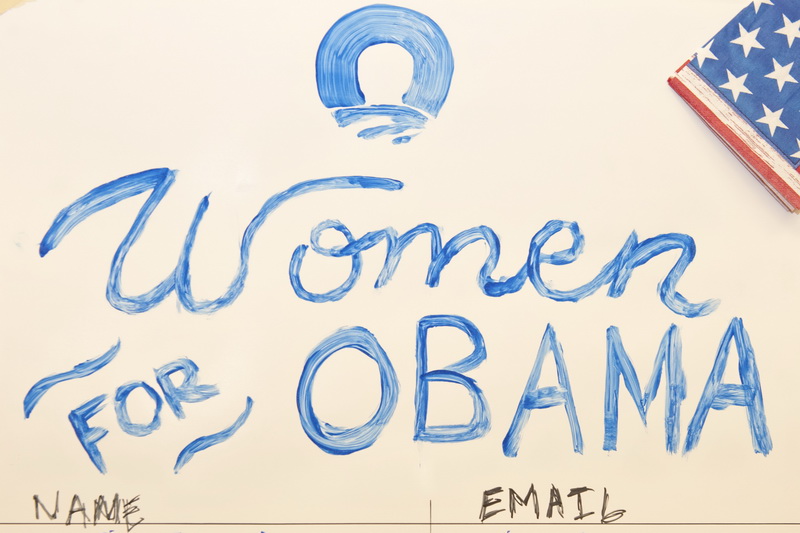 Women
FOR OBAMA
NAME EMAIL